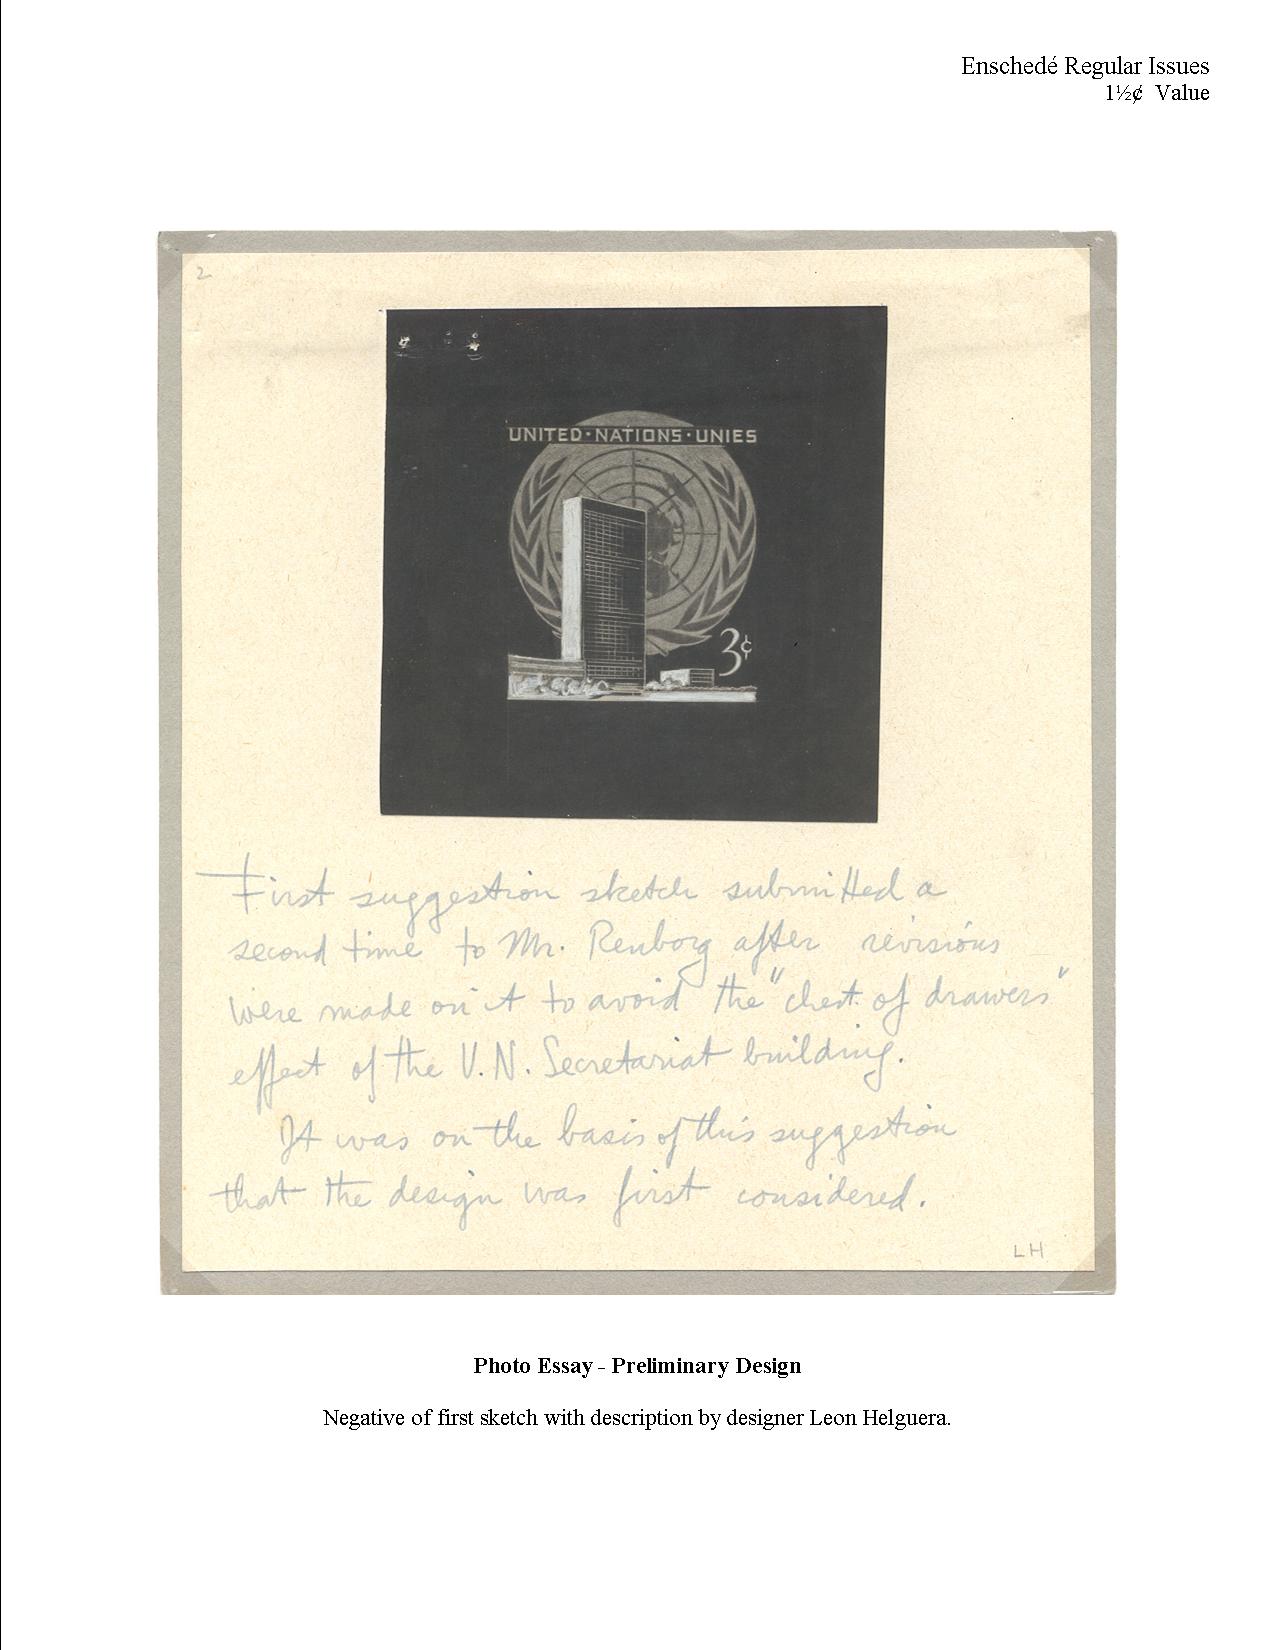 Enschedé Regular Issues
1½¢ Value
2
UNITED·NATIONS·UNIES
3¢
First suggestion sketch submitted a
second time to Mr. Renborg after revisions
were made on it to avoid the "chest of drawers"
effect of the U.N. Secretariat building.
It was on the basis of this suggestion
that the design was first considered.
LH
Photo Essay - Preliminary Design
Negative of first sketch with description by designer Leon Helguera.